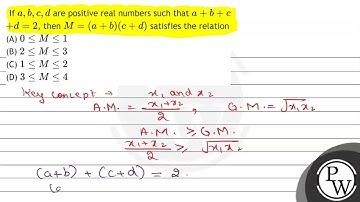 If a, b, c, d are positive real numbers such that a + b + c
+d = 2, then M = (a + b)(c + d) satisfies the relation
(A) 0 ≤ M ≤ 1
(B) 2 ≤ M ≤ 3
(C) 1 ≤ M ≤ 2
(D) 3 ≤ M ≤ 4
Key concept → x₁ and x₂
A.M. = (x₁+x₂)/2 , G.M. = √x₁x₂
A.M. ≥ G.M.
(x₁+x₂)/2 ≥ √x₁x₂
(a+b) + (c+d) = 2.
(
P
W